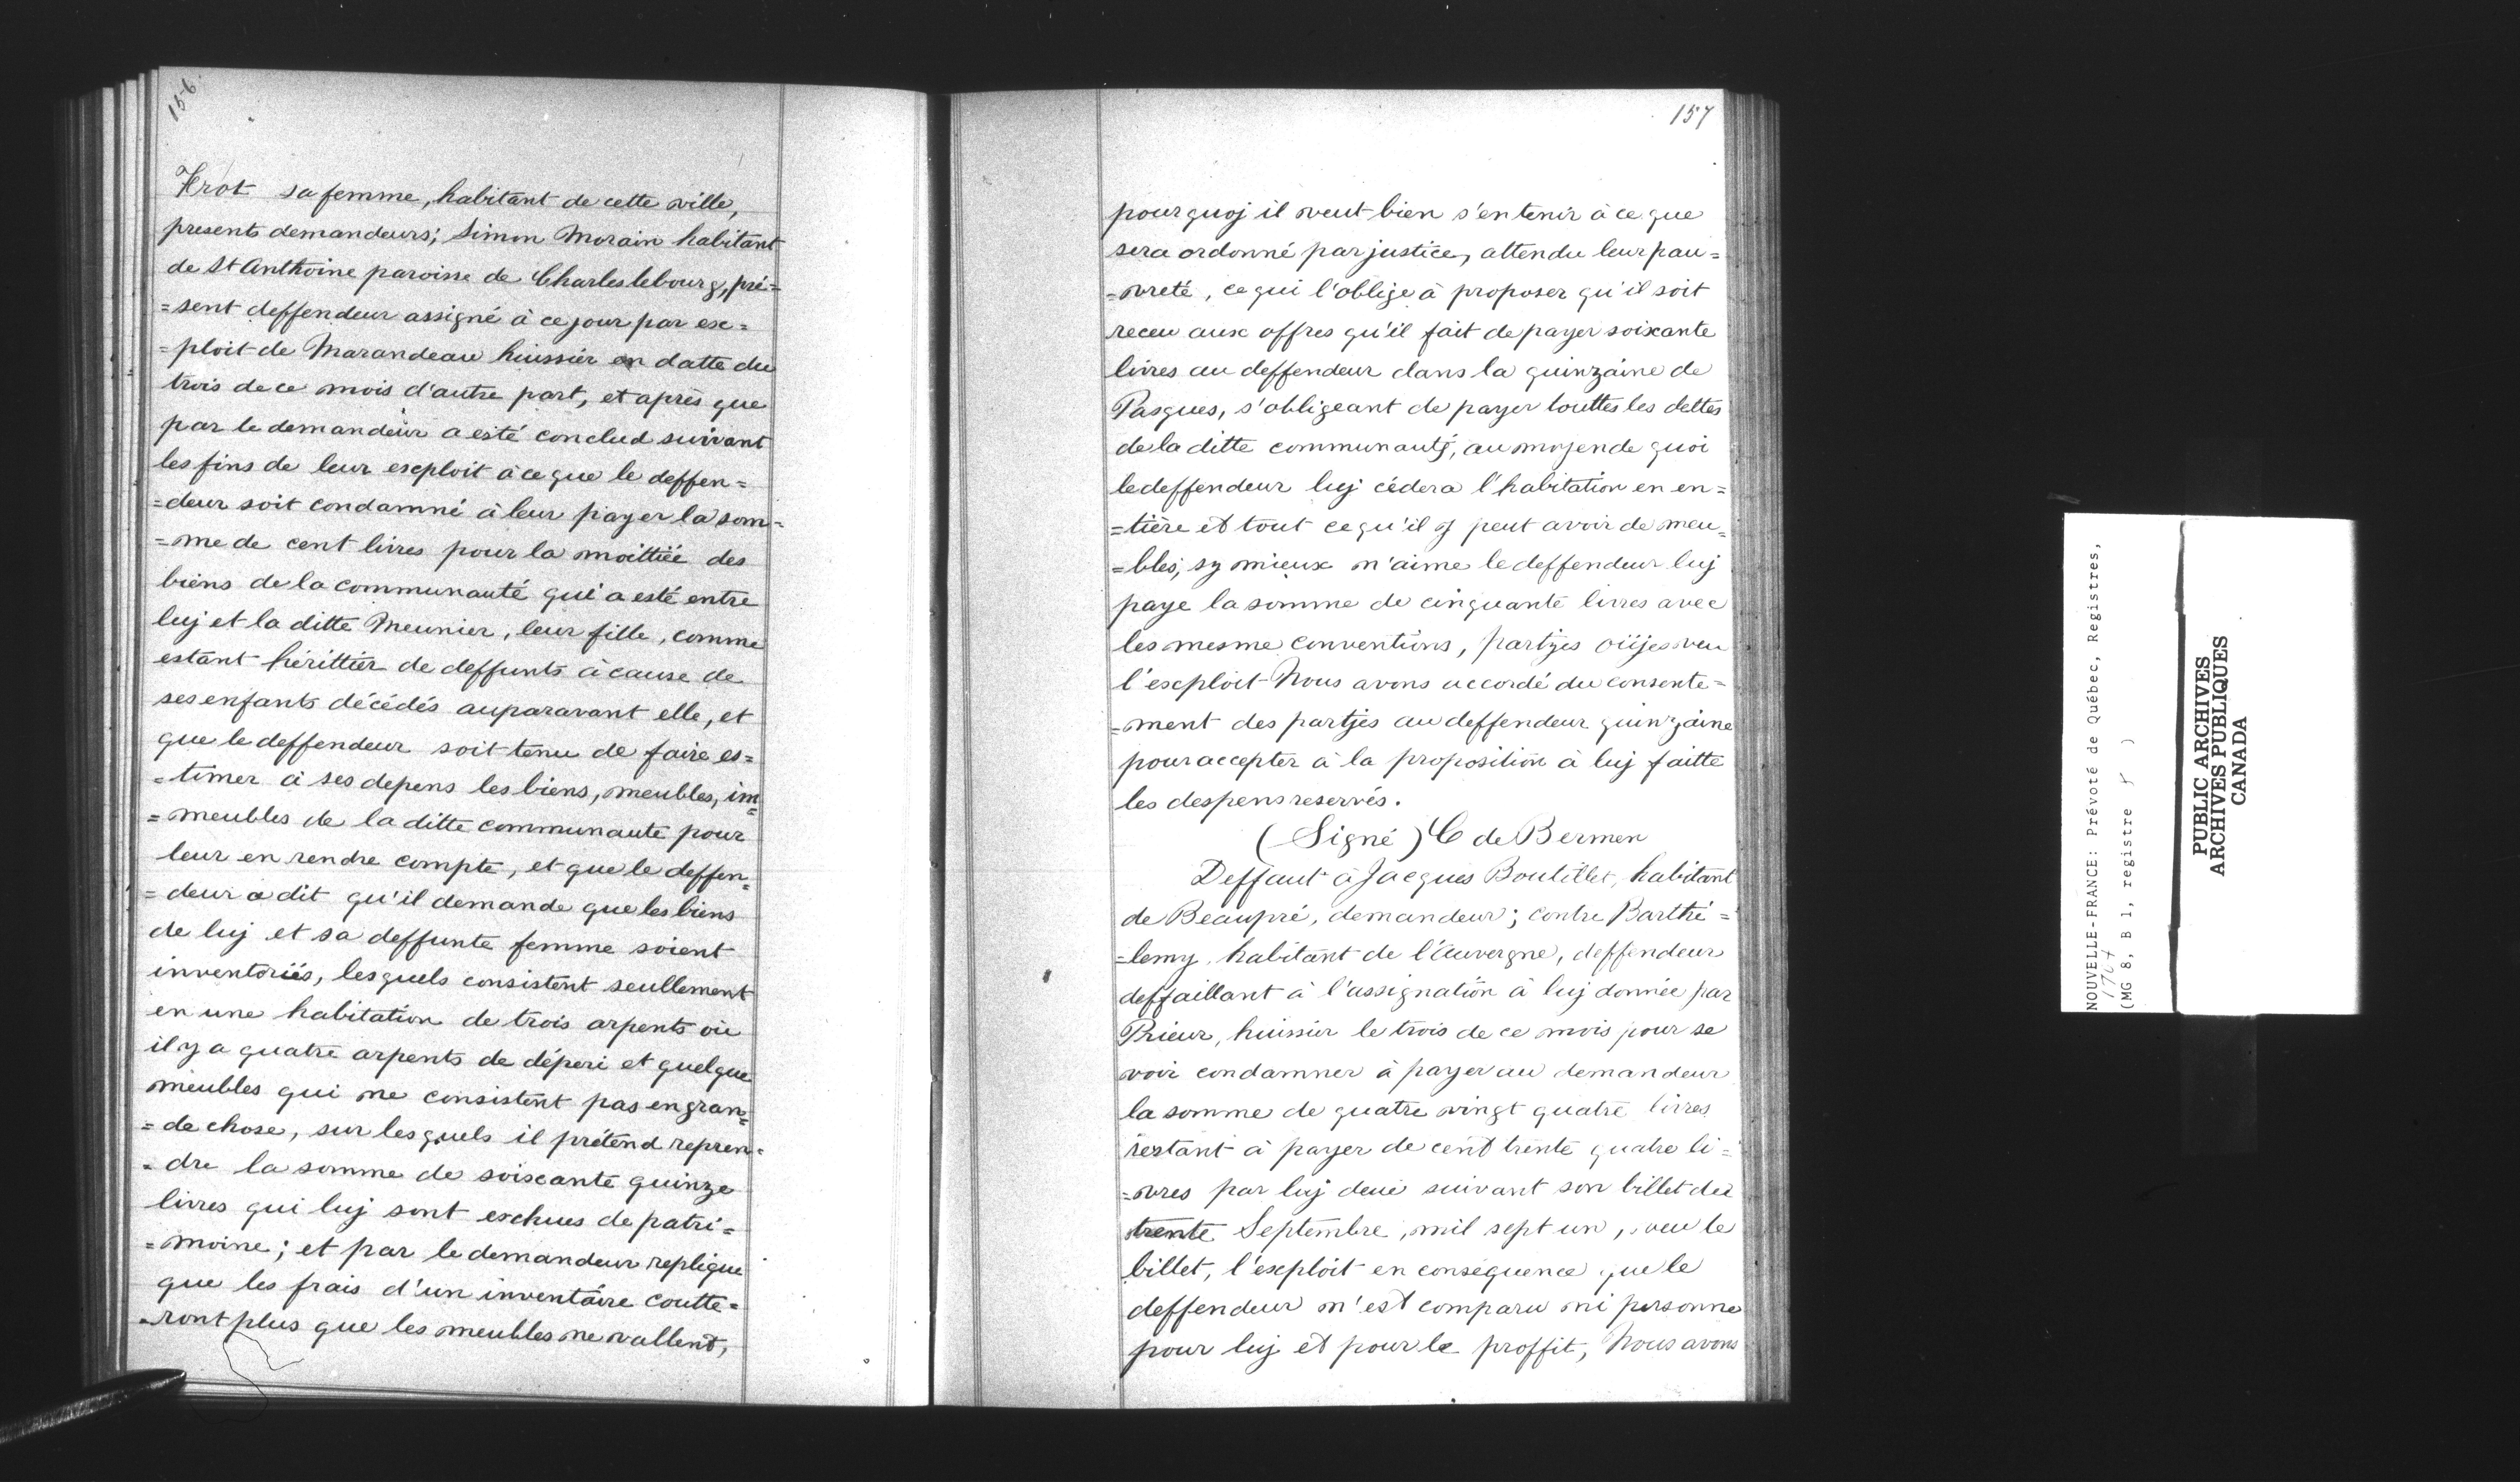 156.
Hrot sa femme, habitant de cette ville,
presents demandeurs; Simon Morain habitant
de St Anthoine paroisse de Charleslebourg, pré=
=sent deffendeur assigné à ce jour par ex=
=ploit de Marandeau huissier en datte du
trois de ce mois d'autre part, et après que
par le demandeur a esté conclud suivant
les fins de leur exploit à ce que le deffen=
=deur soit condamné à leur payer la som=
=me de cent livres pour la moittiée des
biens de la communauté qui a esté entre
luj et la ditte Meunier, leur fille, comme
estant hérittier de deffunts à cause de
ses enfants décédés auparavant elle, et
que le deffendeur soit tenu de faire es=
=timer à ses depens les biens, meubles, im=
=meubles de la ditte communauté pour
leur en rendre compte, et que le deffen=
=deur a dit qu'il demande que les biens
de luj et sa deffunte femme soient
inventoriés, lesquels consistent seullement
en une habitation de trois arpents où
il y a quatre arpents de déperi et quelque
meubles qui ne consistent pas en gran=
=de chose, sur lesquels il prétend repren=
=dre la somme de soixante quinze
livres qui luj sont eschues de patri=
=moine; et par le demandeur replique
que les frais d'un inventaire coutte=
=ront plus que les meubles ne vallent,
157
pourquoj il veut bien s'en tenir à ce que
sera ordonné par justice, attendu leur pau=
=vreté, ce qui l'oblige à proposer qu'il soit
receu aux offres qu'il fait de payer soixante
livres au deffendeur dans la quinzaine de
Pasques, s'obligeant de payer touttes les dettes
de la ditte communauté, au moyen de quoi
le deffendeur luj cédera l'habitation en en=
=tière et tout ce qu'il y peut avoir de meu=
=bles, sy mieux n'aime le deffendeur luj
paye la somme de cinquante livres avec
les mesme conventions, partjes oüjes veu
l'exploit Nous avons accordé du consente=
=ment des partjes au deffendeur quinzaine
pour accepter à la proposition à luj faitte
les despens reservés.
(Signé) C de Bermen
Deffaut à Jacques Boutillet, habitant
de Beaupré, demandeur; contre Barthé=
=lemy habitant de l'Auvergne, deffendeur
deffaillant à l'assignation à luj donnée par
Prieur, huissier le trois de ce mois pour se
voir condamner à payer au demandeur
la somme de quatre vingt quatre livres
restant à payer de cent trente quatre li=
=vres par luj deue suivant son billet du
trente Septembre, mil sept un, veu le
billet, l'exploit en conséquence que le
deffendeur n'est comparu ni personne
pour luj et pour le proffit, Nous avons
NOUVELLE-FRANCE: Prévoté de Québec, Registres,
1707
(MG 8, B 1, registre 5 )
PUBLIC ARCHIVES
ARCHIVES PUBLIQUES
CANADA